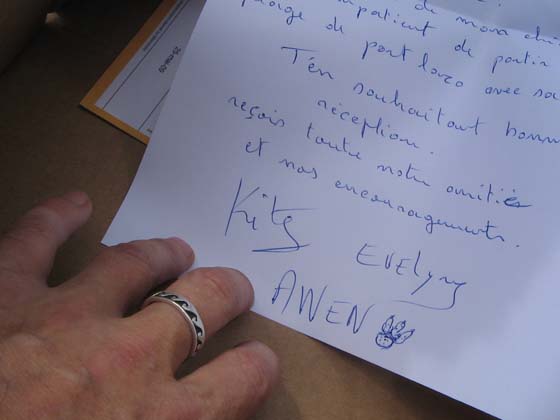 de mon
impatient de partir
plage de port lazo avec
T'en souhaitant bonne
réception.
reçois toute notre amitiés
et nos encouragements.
Kits
EVElyng
AWEN